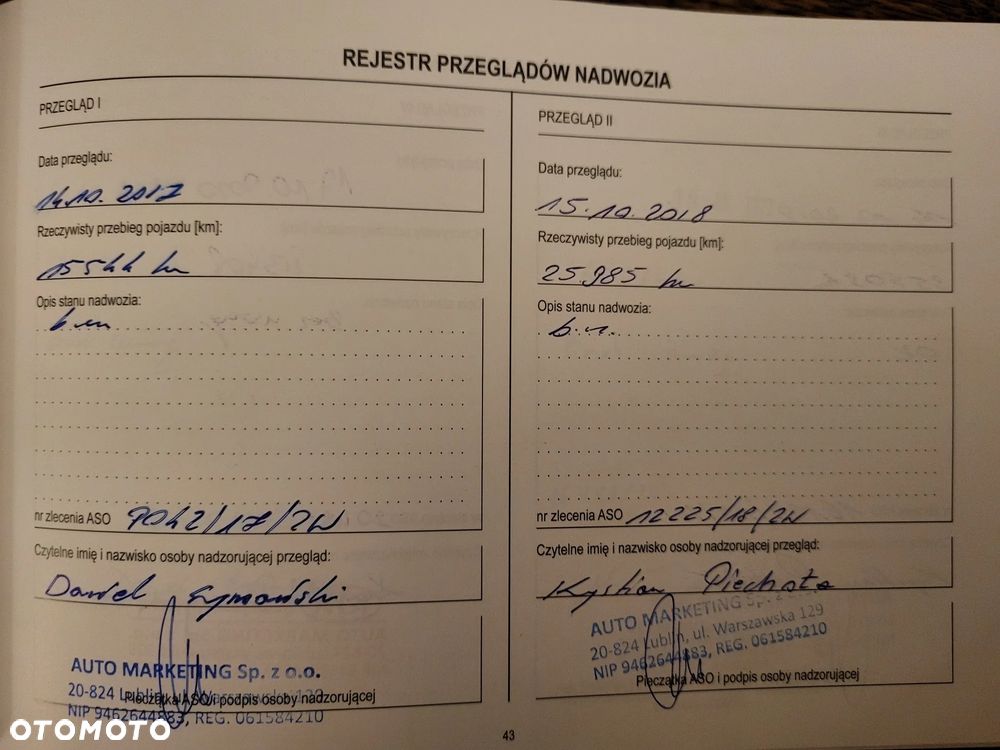 REJESTR PRZEGLĄDÓW NADWOZIA
PRZEGLĄD I
Data przeglądu:
14.10.2017
Rzeczywisty przebieg pojazdu [km]:
15544 km
Opis stanu nadwozia:
nr zlecenia ASO 9042/17/2W
Czytelne imię i nazwisko osoby nadzorującej przegląd:
AUTO MARKETING Sp. z o.o.
20-824 Lublin, ul. Warszawska 129
Pieczątka ASO i podpis osoby nadzorującej
NIP 9462644883, REG. 061584210
PRZEGLĄD II
Data przeglądu:
15.10.2018
Rzeczywisty przebieg pojazdu [km]:
25.985 km
Opis stanu nadwozia:
nr zlecenia ASO 12225/18/2W
Czytelne imię i nazwisko osoby nadzorującej przegląd:
Piechota
AUTO MARKETING Sp. z o.o.
20-824 Lublin, ul. Warszawska 129
NIP 9462644883, REG. 061584210
Pieczątka ASO i podpis osoby nadzorującej
43
OTOMOTO